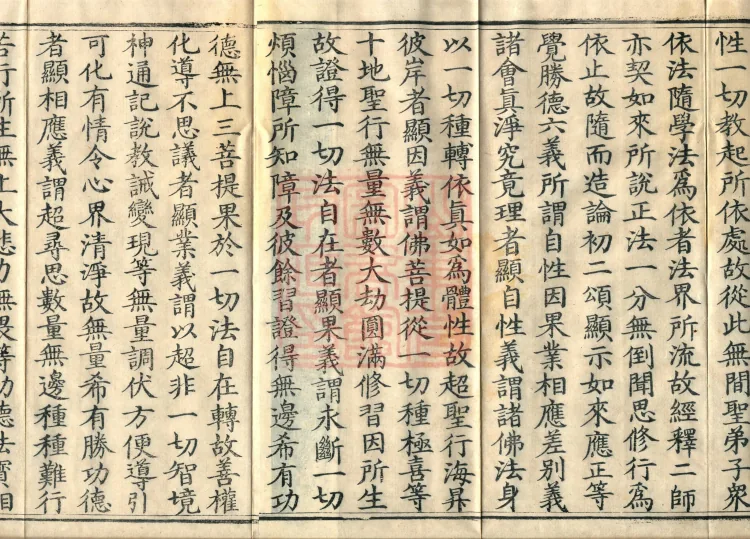 性一切教起所依處故從此無間聖弟子眾
依法隨學法為依者法界所流故經釋二師
亦契如來所說正法一分無倒聞思修行為
依止故隨而造論初二頌顯示如來應正等
覺勝德六義所謂自性因果業相應差別義
諸會真淨究竟理者顯自性義謂諸佛法身
以一切種轉依真如為體性故超聖行海昇
彼岸者顯因義謂佛菩提從一切種極喜等
十地聖行無量無數大劫圓滿修習因所生
故證得一切法自在者顯果義謂永斷一切
煩惱障所知障及彼餘習證得無邊希有功
德無上三菩提果於一切法自在轉故善權
化導不思議者顯業義謂以超非一切智境
神通記說教誡變現等無量調伏方便導引
可化有情令心界清淨故無量希有勝功德
者顯相應義謂超尋思數量無邊種種難行
苦行所生無上大悲力無畏等功德法寶相